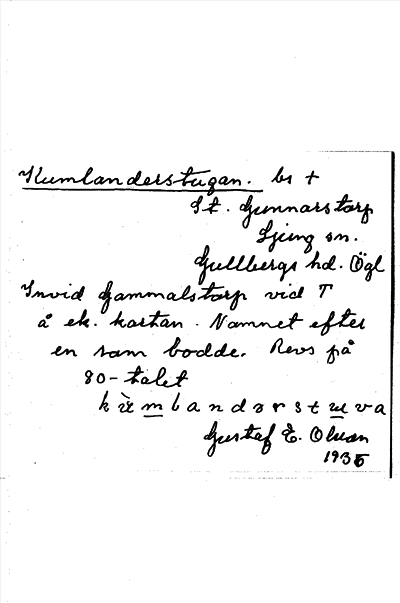 Kumlanderstugan. bs +
St. Gunnarstorp
Ljung sn.
Gullbergs hd. Ögl
Invid Gammalstorp vid T
å ek. kartan. Namnet efter
en som bodde. Revs på
80-talet
k ù m l a n d ə r s t u v a
Gustaf E. Olsson
1935